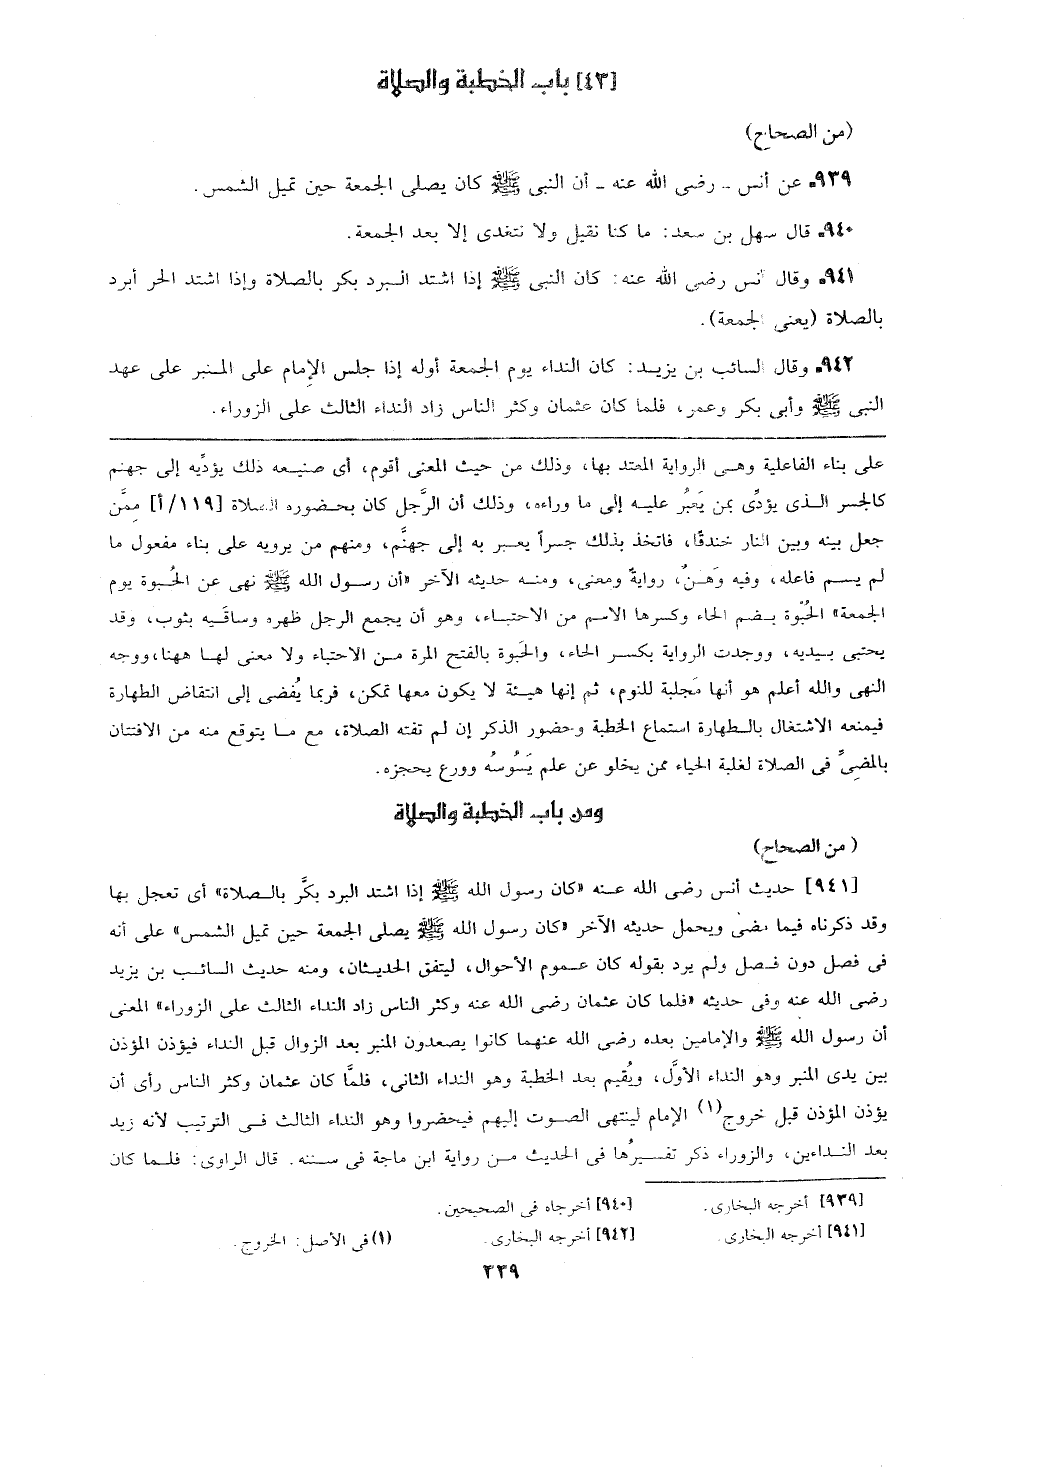 [٤٣] باب الخطبة والصلاة
(من الصحاح)
٩٣٩. عن أنس - رضى الله عنه - أن النبى ﷺ كان يصلى الجمعة حين تميل الشمس.
٩٤٠. قال سهل بن سعد: ما كنا نقيل ولا نتغدى إلا بعد الجمعة.
٩٤١. وقال أنس رضى الله عنه: كان النبى ﷺ إذا اشتد البرد بكر بالصلاة وإذا اشتد الحر أبرد
بالصلاة (يعنى الجمعة).
٩٤٢. وقال السائب بن يزيد: كان النداء يوم الجمعة أوله إذا جلس الإمام على المنبر على عهد
النبى ﷺ وأبى بكر وعمر، فلما كان عثمان وكثر الناس زاد النداء الثالث على الزوراء.
على بناء الفاعلية وهى الرواية المعتد بها، وذلك من حيث المعنى أقوم، أى صنيعه ذلك يؤدِّيه إلى جهنم
كالجسر الذى يؤدِّى بمن يَعبُر عليه إلى ما وراءه، وذلك أن الرَّجل كان بحضوره الصلاة [١١٩/أ] ممَّن
جعل بينه وبين النار خندقًا، فاتخذ بذلك جسراً يعبر به إلى جهنَّم، ومنهم من يرويه على بناء مفعول ما
لم يسم فاعله، وفيه وَهَنٌ، روايةً ومعنى، ومنه حديثه الآخر «أن رسول الله ﷺ نهى عن الحُبوة يوم
الجمعة» الحُبْوة بضم الحاء وكسرها الاسم من الاحتباء، وهو أن يجمع الرجل ظهره وساقَيه بثوب، وقد
يحتبى بيديه، ووجدت الرواية بكسر الحاء، والحَبوة بالفتح المرة من الاحتباء ولا معنى لها ههنا، ووجه
النهى والله أعلم هو أنها مَجلبة للنوم، ثم إنها هيئة لا يكون معها تمكن، فربما يُفضى إلى انتقاض الطهارة
فيمنعه الاشتغال بالطهارة استماع الخطبة وحضور الذكر إن لم تفته الصلاة، مع ما يتوقع منه من الافتتان
بالمضىِّ فى الصلاة لغلبة الحياء ممن يخلو عن علم يَسُوسُه وورع يحجزه.
ومن باب الخطبة والصلاة
(من الصحاح)
[٩٤١] حديث أنس رضى الله عنه «كان رسول الله ﷺ إذا اشتد البرد بكَّر بالصلاة» أى تعجل بها
وقد ذكرناه فيما مضى ويحمل حديثه الآخر «كان رسول الله ﷺ يصلى الجمعة حين تميل الشمس» على أنه
فى فصل دون فصل ولم يرد بقوله كان عموم الأحوال، ليتفق الحديثان، ومنه حديث السائب بن يزيد
رضى الله عنه وفى حديثه «فلما كان عثمان رضى الله عنه وكثر الناس زاد النداء الثالث على الزوراء» المعنى
أن رسول الله ﷺ والإمامين بعده رضى الله عنهما كانوا يصعدون المنبر بعد الزوال قبل النداء فيؤذن المؤذن
بين يدى المنبر وهو النداء الأوَّل، ويُقيم بعد الخطبة وهو النداء الثانى، فلمَّا كان عثمان وكثر الناس رأى أن
يؤذن المؤذن قبل خروج(١) الإمام لينتهى الصوت إليهم فيحضروا وهو النداء الثالث فى الترتيب لأنه زيد
بعد النداءين، والزوراء ذكر تفسيرُها فى الحديث من رواية ابن ماجة فى سننه. قال الراوى: فلما كان
[٩٣٩] أخرجه البخارى. [٩٤٠] أخرجاه فى الصحيحين.
[٩٤١] أخرجه البخارى. [٩٤٢] أخرجه البخارى. (١) فى الأصل: الخروج.
٣٣٩